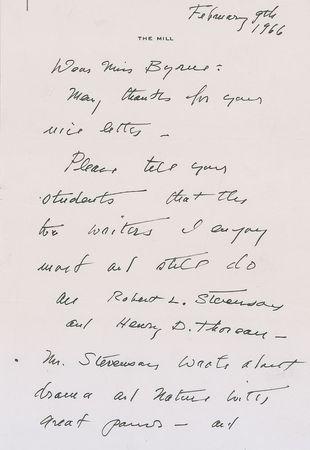 February 9th
1966
THE MILL
Dear Miss Byrne:
Many thanks for your
nice letter —
Please tell your
students that the
two writers I enjoy
most and still do
are Robert L. Stevenson
and Henry D. Thoreau —
Mr. Stevenson wrote about
drama and nature with
great power — and